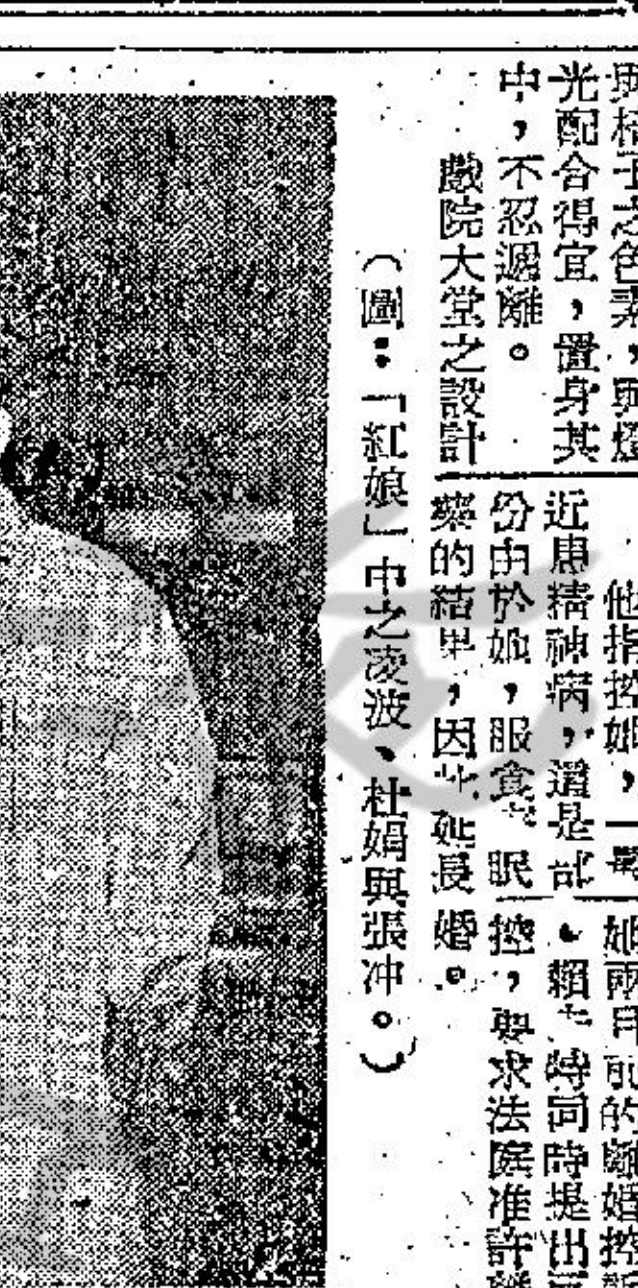 與椅子之色素，與燈
光配合得宜，置身其
中，不忍遽離。
戲院大堂之設計
他指控她，
近患精神病，這是部
份由於她，服食 眠
藥的結果，因此延長
她兩月前的離婚控
賴 時同時提出
控，要求法庭准許
婚。
（圖：「紅娘」中之凌波、杜娟與張冲。）